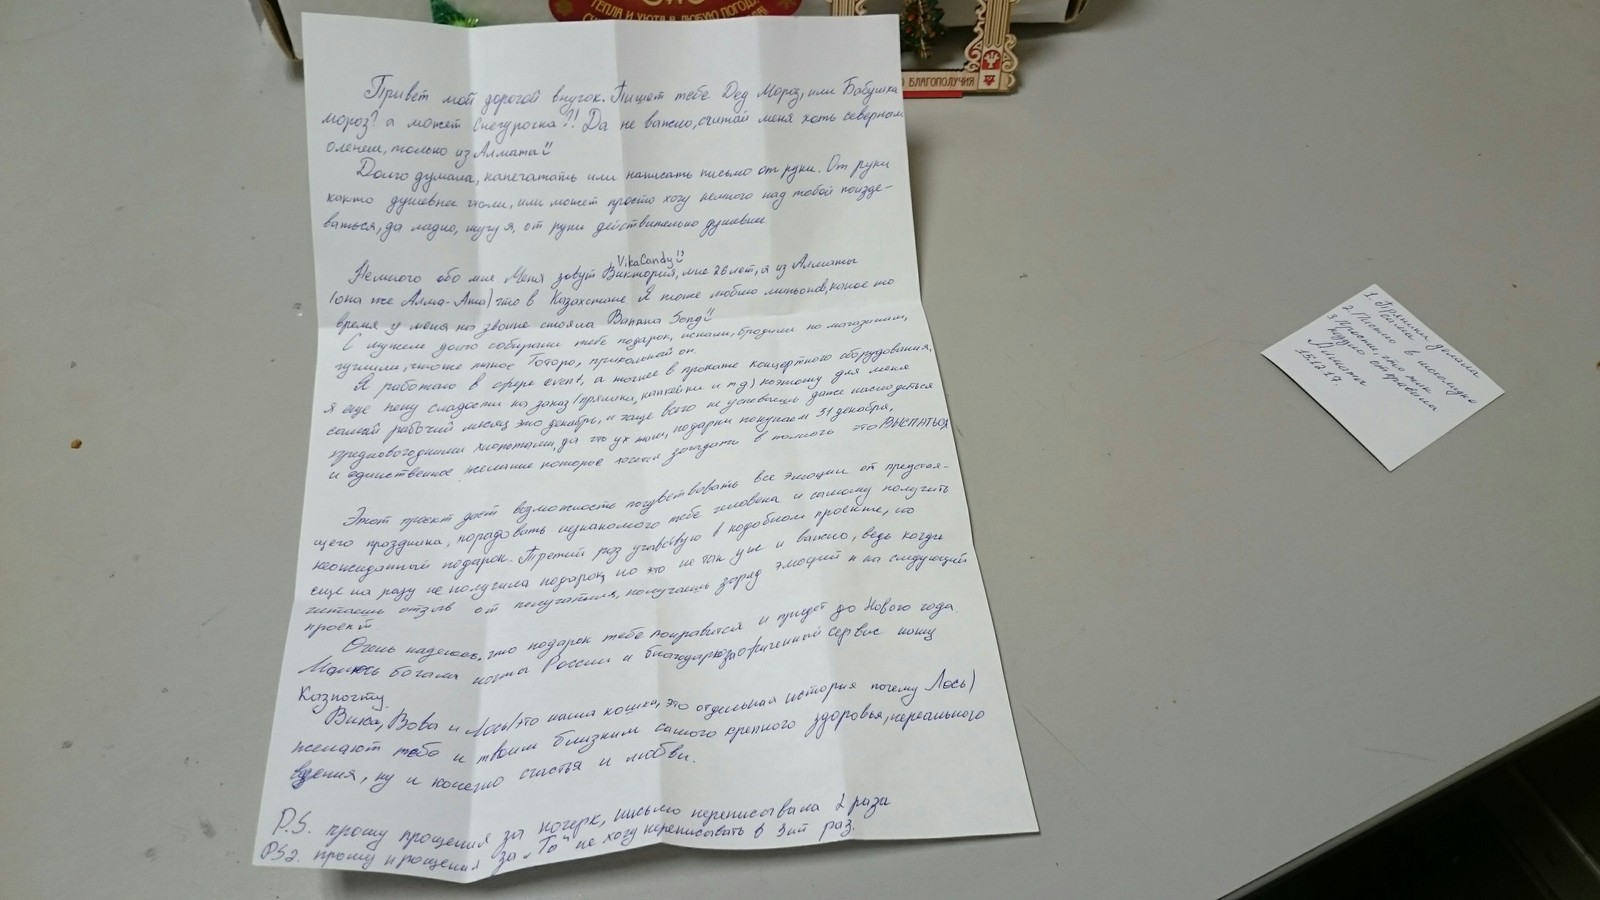 ТЕПЛА И УЮТА В ЛЮБУЮ ПОГОДУ
БЛАГОПОЛУЧИЯ
Привет мой дорогой внучок. Пишет тебе Дед Мороз, или Бабушка
мороз? а может Снегурочка?! Да не важно, считай меня хоть северным
оленем, только из Алмата
Долго думала, напечатать или написать письмо от руки. От руки
както душевнее чтоли, или может просто хочу немного над тобой поизде-
ваться, да ладно, шучу я, от руки действительно душевнее
VikaCandy
Немного обо мне Меня зовут Виктория, мне 26 лет, я из Алматы
(она же Алма-Ата) что в Казахстане Я тоже люблю миньонов, какое то
время у меня на звонке стояла Banana Song
С мужем долго собирали тебе подарок, искали, бродили по магазинам,
гуглили, что же такое Тоторо, прикольный он.
Я работаю в сфере event, а точнее в прокате концертного оборудования,
я еще пеку сладости на заказ (пряники, капкейки и тд) поэтому для меня
самый рабочий месяц это декабрь, и чаще всего не успеваешь даже насладиться
предновогодними хлопотами, да что уж там, подарки покупаем 31 декабря,
и единственное желание которое хочется загадать в полночь это ВЫСПАТЬСЯ
Этот проект дает возможность почувствовать все эмоции от предстоя-
щего праздника, порадовать незнакомого тебе человека и самому получить
неожиданный подарок. Третий раз участвую в подобном проекте, но
еще ни разу не получила подарок, но это не так уже и важно, ведь когда
читаешь отзыв от получателя, получаешь заряд эмоций и на следующий
проект
Очень надеюсь, что подарок тебе понравится и придет до Нового года.
Молюсь богам почты России и благодарю за офигенный сервис нашу
Казпочту.
Вика, Вова и Лось (это наша кошка, это отдельная история почему Лось)
желают тебе и твоим близким самого крепкого здоровья, нереального
везения, ну и конечно счастья и любви.
P.S. прошу прощения за почерк, письмо переписывала 2 раза
PS2. прошу прощения за "То" не хочу переписывать в 3ий раз.
1. Пряники делала
сама
2. Письмо в шоколадке
3. Прикрепи, что так
поздно отправила
Алматы
15.12.17.